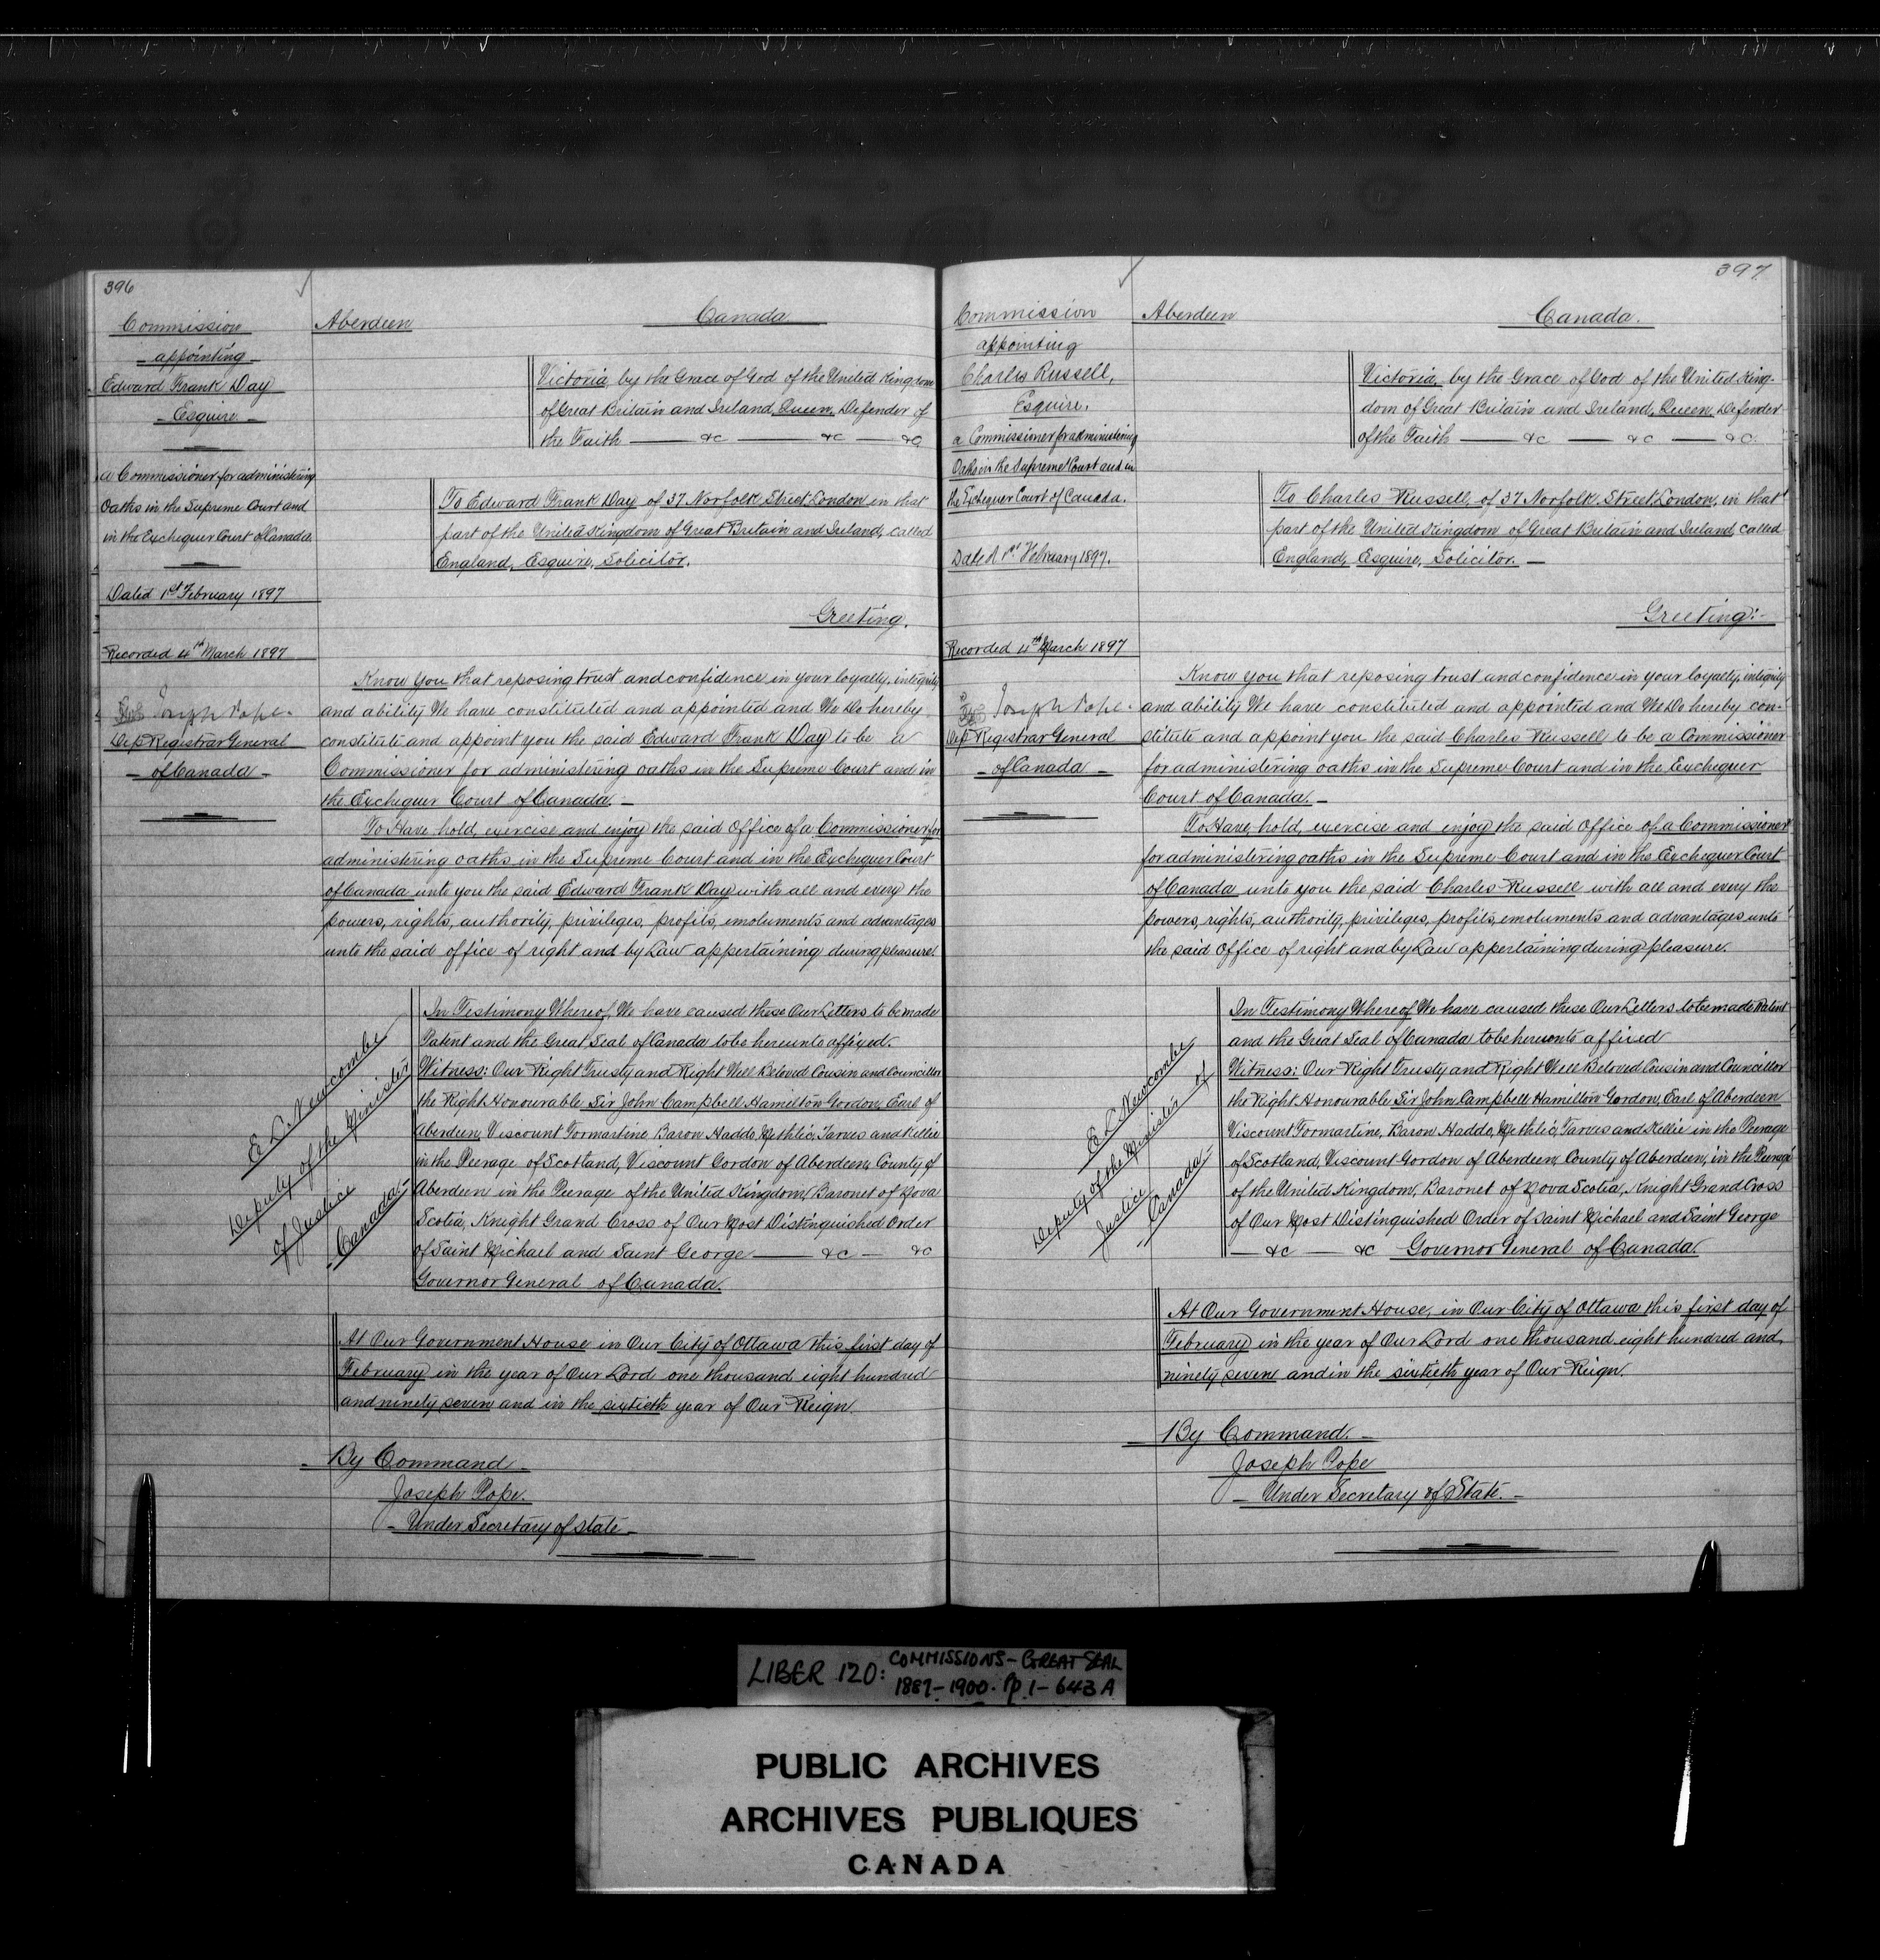 396
Commission
appointing
Edward Frank Day
Esquire
a Commissioner for administering
Oaths in the Supreme Court and
in the Exchequer Court of Canada.
Dated 1st February 1897
Recorded 4th March 1897
Joseph Pope.
Dep Registrar General
of Canada
Aberdeen
Canada
Victoria, by the Grace of God of the United Kingdom
of Great Britain and Ireland, Queen, Defender of
the Faith — &c — &c — &c
To Edward Frank Day of 37 Norfolk Street, London in that
part of the United Kingdom of Great Britain and Ireland, called
England, Esquire, Solicitor.
Greeting.
Know You that reposing trust and confidence in your loyalty, integrity
and ability We have constituted and appointed and We Do hereby
constitute and appoint you the said Edward Frank Day to be a
Commissioner for administering oaths in the Supreme Court and in
the Exchequer Court of Canada. —
To Have, hold, exercise and enjoy the said Office of a Commissioner for
administering oaths in the Supreme Court and in the Exchequer Court
of Canada unto you the said Edward Frank Day with all and every the
powers, rights, authority, privileges, profits, emoluments and advantages
unto the said office of right and by Law appertaining during pleasure.
E L Newcombe
Deputy of the Minister
of Justice
Canada
In Testimony Whereof, We have caused these Our Letters to be made
Patent and the Great Seal of Canada to be hereunto affixed.
Witness: Our Right Trusty and Right Well Beloved Cousin and Councillor
the Right Honourable Sir John Campbell Hamilton Gordon, Earl of
Aberdeen, Viscount Formartine, Baron Haddo, Methlic, Tarves and Kellie
in the Peerage of Scotland, Viscount Gordon of Aberdeen, County of
Aberdeen in the Peerage of the United Kingdom, Baronet of Nova
Scotia, Knight Grand Cross of Our Most Distinguished Order
of Saint Michael and Saint George — &c — &c
Governor General of Canada.
At Our Government House in Our City of Ottawa this first day of
February in the year of Our Lord one thousand eight hundred
and ninety seven and in the sixtieth year of Our Reign.
By Command
Joseph Pope.
Under Secretary of State
397
Commission
appointing
Charles Russell,
Esquire.
a Commissioner for administering
Oaths in the Supreme Court and in
the Exchequer Court of Canada.
Dated 1st February 1897.
Recorded 4th March 1897
Joseph Pope.
Dep Registrar General
of Canada
Aberdeen
Canada.
Victoria, by the Grace of God of the United King-
dom of Great Britain and Ireland, Queen, Defender
of the Faith — &c — &c — &c.
To Charles Russell, of 37 Norfolk Street London, in that
part of the United Kingdom of Great Britain and Ireland called
England, Esquire, Solicitor. —
Greeting:—
Know You that reposing trust and confidence in your loyalty, integrity
and ability We have constituted and appointed and We Do hereby con-
stitute and appoint you the said Charles Russell to be a Commissioner
for administering oaths in the Supreme Court and in the Exchequer
Court of Canada. —
To Have, hold, exercise and enjoy the said Office of a Commissioner
for administering oaths in the Supreme Court and in the Exchequer Court
of Canada unto you the said Charles Russell with all and every the
powers, rights, authority, privileges, profits, emoluments and advantages unto
the said Office of right and by Law appertaining during pleasure.
E L Newcombe
Deputy of the Minister of
Justice
Canada
In Testimony Whereof We have caused these Our Letters to be made Patent
and the Great Seal of Canada to be hereunto affixed
Witness: Our Right Trusty and Right Well Beloved Cousin and Councillor
the Right Honourable Sir John Campbell Hamilton Gordon, Earl of Aberdeen
Viscount Formartine, Baron Haddo, Methlic, Tarves and Kellie in the Peerage
of Scotland, Viscount Gordon of Aberdeen, County of Aberdeen, in the Peerage
of the United Kingdom, Baronet of Nova Scotia, Knight Grand Cross
of Our Most Distinguished Order of Saint Michael and Saint George
— &c — &c Governor General of Canada.
At Our Government House, in Our City of Ottawa this first day of
February in the year of Our Lord one thousand eight hundred and
ninety seven and in the sixtieth year of Our Reign.
By Command.
Joseph Pope
Under Secretary of State.
LIBER 120: COMMISSIONS - GREAT SEAL
1887-1900. Pp. 1-643A
PUBLIC ARCHIVES
ARCHIVES PUBLIQUES
CANADA